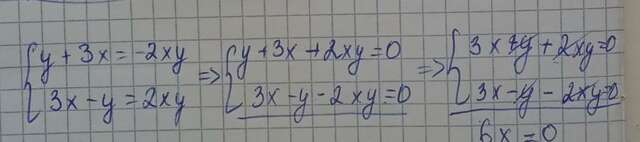 y + 3x = -2xy => y + 3x + 2xy = 0 => 3x + y + 2xy = 0
3x - y = 2xy 3x - y - 2xy = 0 3x - y - 2xy = 0
6x = 0